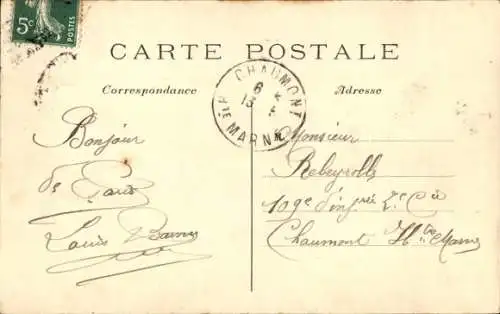 5c
POSTES
CARTE POSTALE
Correspondance
Adresse
CHAUMONT
6
13 5
HTE MARNE
Bonjour
de Paris
Louis
Monsieur
Rebeyrolle
109e d'inf 2e Cie
Chaumont Hte Marne